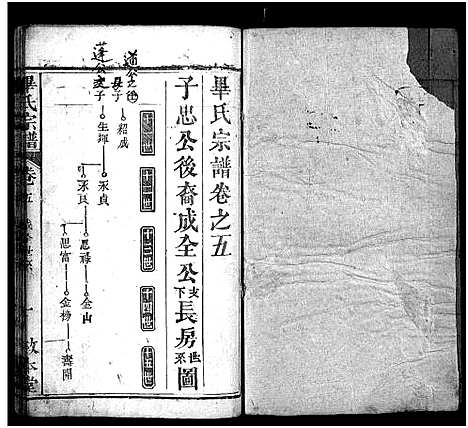 畢氏宗譜卷之五
子思公後裔成全公支下長房世系圖
十一世
十二世
十三世
十四世
十五世
紹成
子
生輝
永貞
永良
思祿
思富
金山
金榜
壽開
畢氏宗譜
卷五
敦本堂